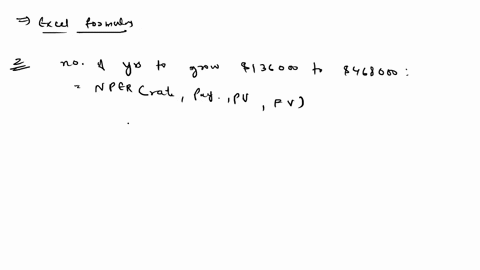 ⇒ Excel formulas
2 no. of yrs to grow $136000 to $468000 :
= NPER (rate, Pay., PV, FV)